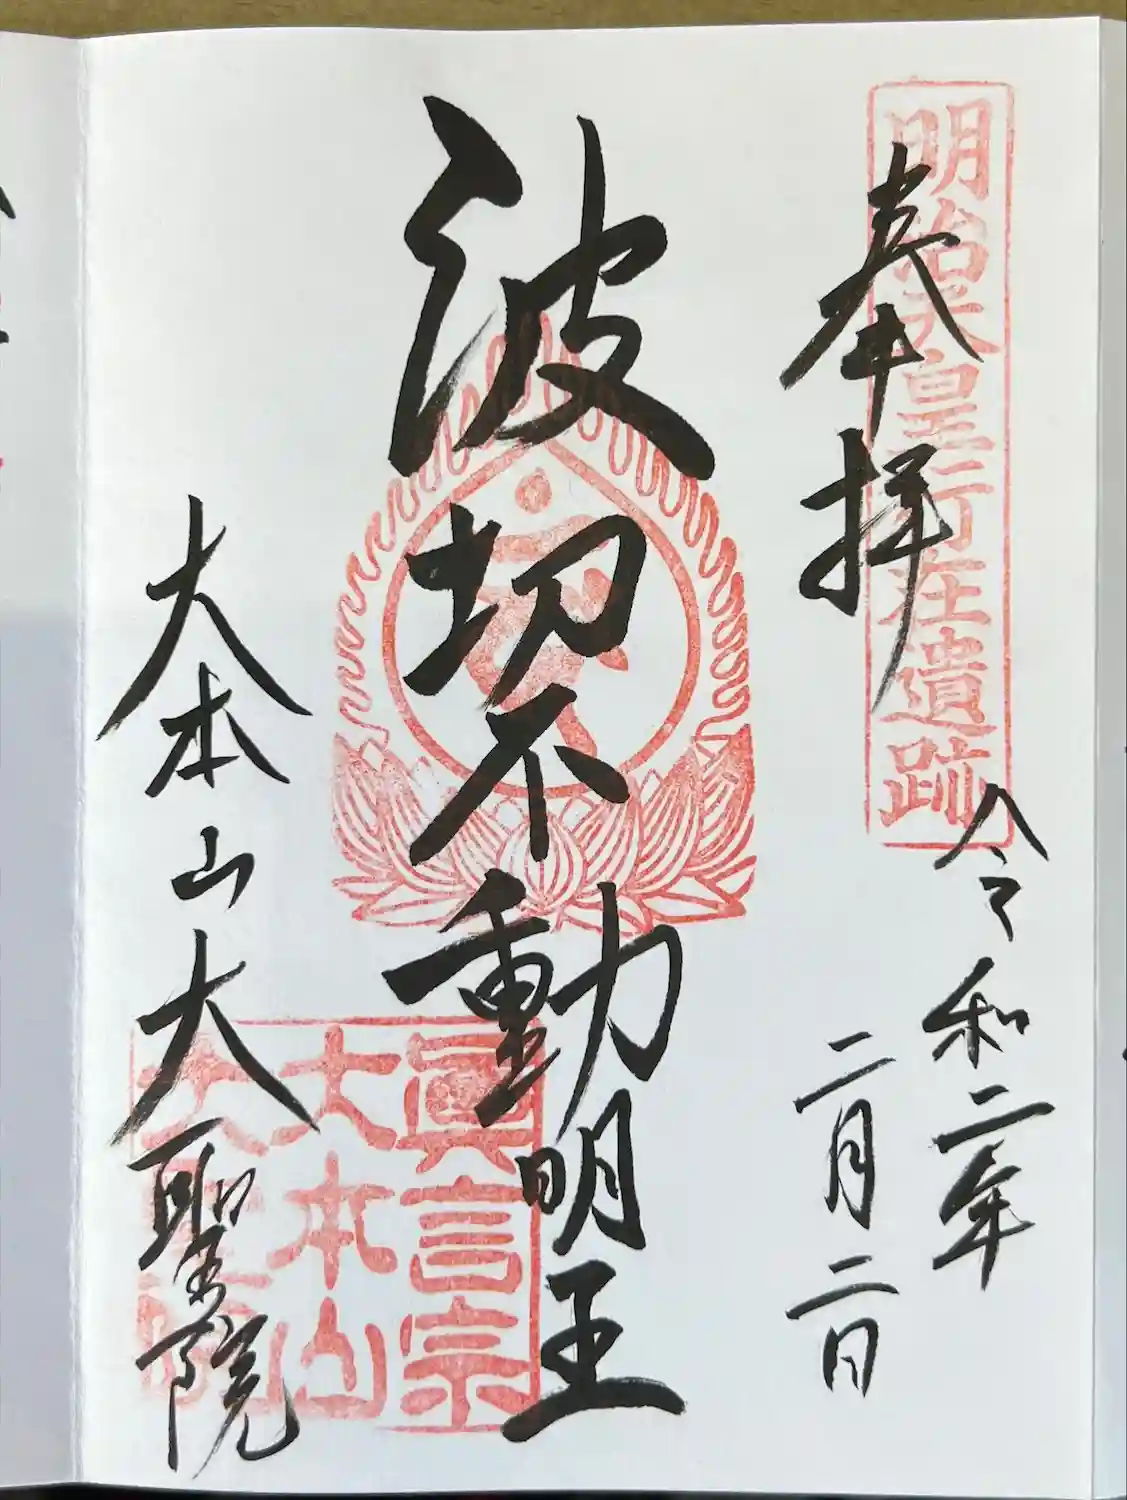 明治天皇行在遺跡
奉拝
令和二年
二月二日
波切不動明王
大本山大聖院
眞言宗
大本山
大聖院